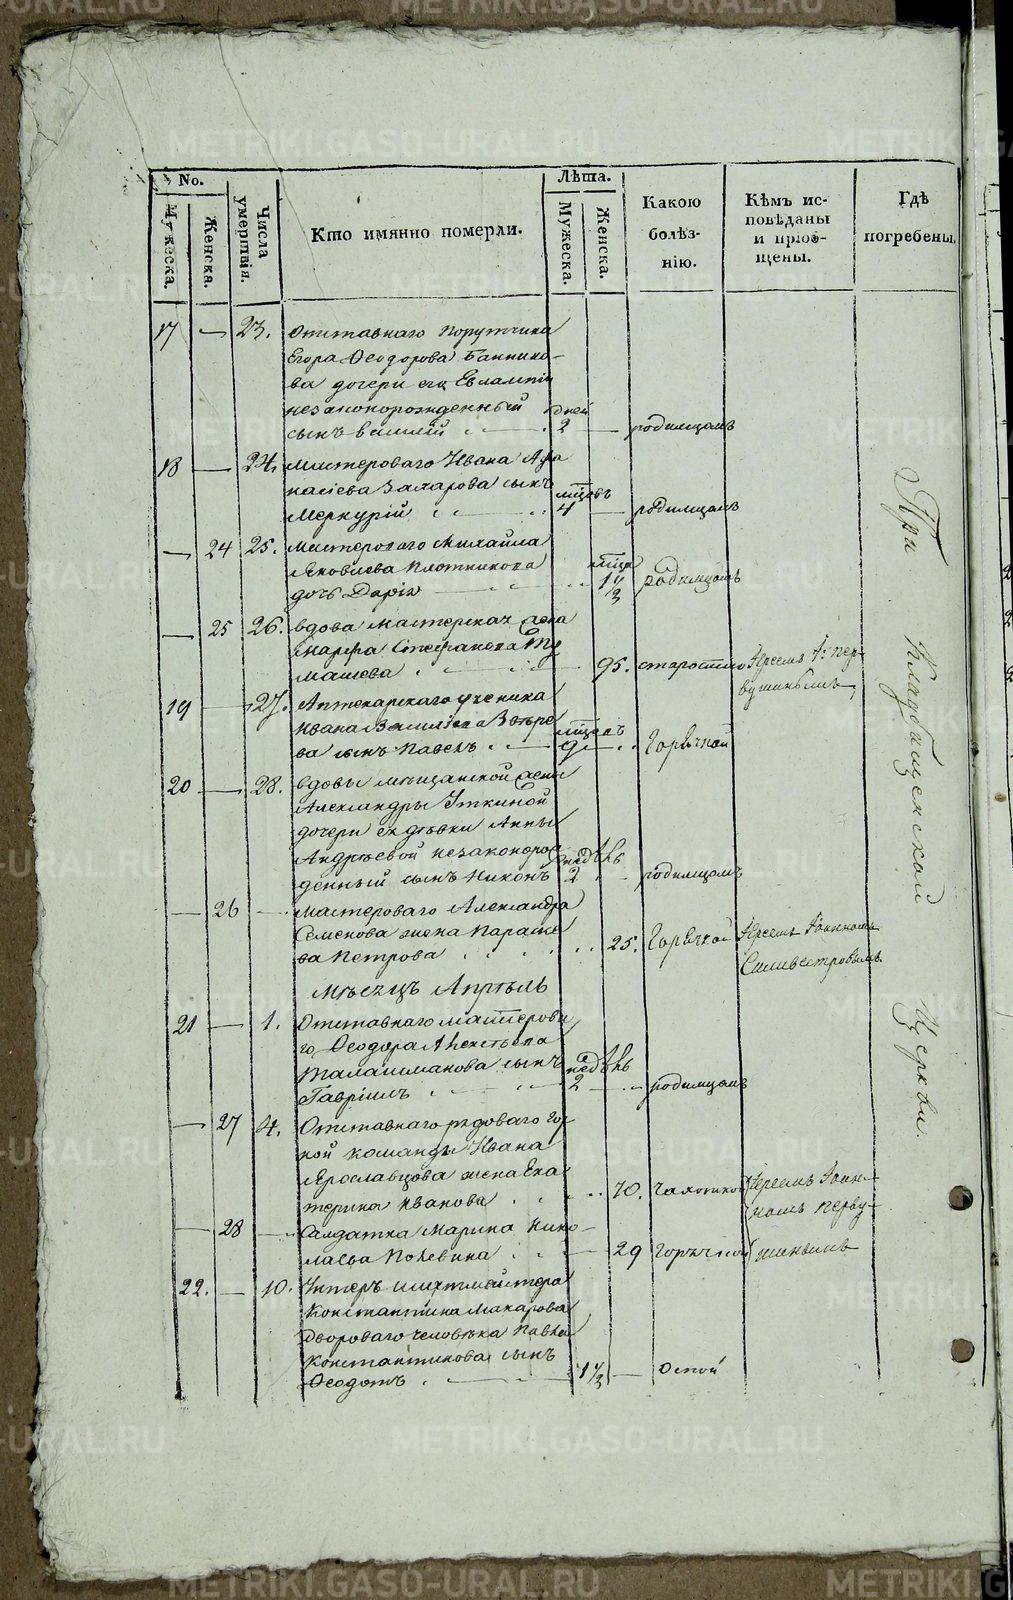 METRIKI.GASO-URAL.RU
No.
Мужеска.
Женска.
Числа умершвія.
Кто имянно померли.
Лѣта.
Мужеска.
Женска.
Какою болѣз-нію.
Кѣмъ ис-повѣданы и пріоб-щены.
Гдѣ погребены.
17 — 23. Отставнаго Порутчика
Егора Ѳеодорова Баннико-
ва дочери его Евлампіи
незаконорожденный дней
сынъ Василій 2 — родимцомъ
18 — 24. Мастероваго Ивана Афа
насіева Захарова сынъ мѣсцовъ
Меркурій 4 — родимцомъ
— 24 25. Мастероваго Михайла
Яковлева Плотникова мѣсца
дочь Дарія 1 1/2 родимцомъ
— 25 26. вдова мастерская жена
Марфа Стефанова
машева — 95. старостію Іереемъ І: Пер-
вушинымъ,
19 — 27. Аптекарскаго ученика
Ивана Васильева Звѣре мѣсцовъ
ва сынъ Павелъ 9 — Горячкой
20 — 28. вдовы мѣщанской жены
Александры Уткиной
дочери ея дѣвки Анны
Андреевой незаконорож недѣль
денный сынъ Никонъ 2 родимцомъ
— 26 — мастероваго Александра
Семенова жена Параске
ва Петрова 25. Горячкой Іереемъ Іоанномъ
Силивестровымъ
Мѣсяцъ Апрѣль
21 — 1. Отставнаго мастерова
го Ѳеодора
Талашманова сынъ недѣль
Гавріилъ 2 — родимцомъ
— 27 4. Отставнаго рядоваго Гор
ной команды Ивана
Ярославцова жена Ека
терина Иванова 70. Чахоткой Іереемъ Іоан-
номъ Перву-
— 28 — Солдатка Марина Нико-
лаева Полевина — 29 горячкой шинымъ
22. — 10. Унтеръ шихтмейстера
Константина Макарова
Двороваго человѣка Павла
Константинова сынъ
Ѳеодотъ 1 1/2 — Оспой
При Кладбищенской Церкви.